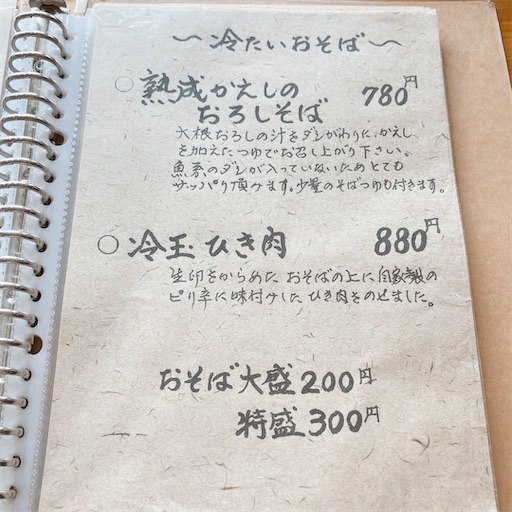 〜冷たいおそば〜
○ 熟成かえしの
おろしそば 780円
大根おろしの汁をダシがわりに、かえし
を加えたつゆでお召し上がり下さい。
魚系のダシが入っていないためとても
サッパリ頂けます。少量のそばつゆも付きます。
○ 冷玉ひき肉 880円
生卵をからめた おそばの上に自家製の
ピリ辛に味付けした ひき肉をのせました。
おそば大盛200円
特盛300円